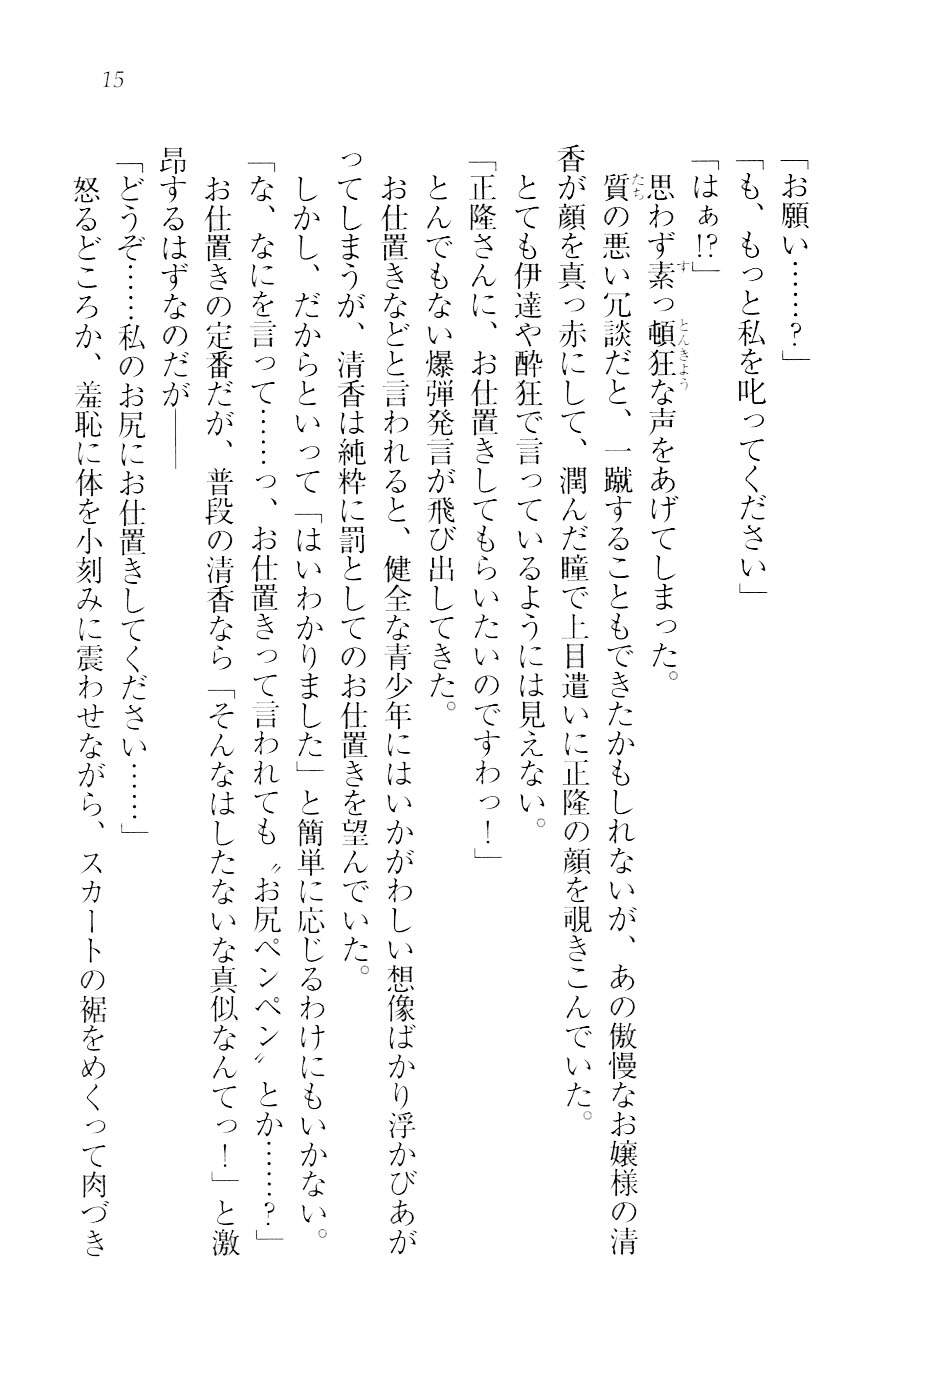 15
「お願い……？」
「も、もっと私を叱ってください」
「はぁ!?」
思わず素っ頓狂な声をあげてしまった。
質の悪い冗談だと、一蹴することもできたかもしれないが、あの傲慢なお嬢様の清
香が顔を真っ赤にして、潤んだ瞳で上目遣いに正隆の顔を覗きこんでいた。
とても伊達や酔狂で言っているようには見えない。
「正隆さんに、お仕置きしてもらいたいのですわっ！」
とんでもない爆弾発言が飛び出してきた。
お仕置きなどと言われると、健全な青少年にはいかがわしい想像ばかり浮かびあが
ってしまうが、清香は純粋に罰としてのお仕置きを望んでいた。
しかし、だからといって「はいわかりました」と簡単に応じるわけにもいかない。
「な、なにを言って……っ、お仕置きって言われても〝お尻ペンペン〟とか……？」
お仕置きの定番だが、普段の清香なら「そんなはしたないな真似なんてっ！」と激
昂するはずなのだが――
「どうぞ……私のお尻にお仕置きしてください……」
怒るどころか、羞恥に体を小刻みに震わせながら、スカートの裾をめくって肉づき